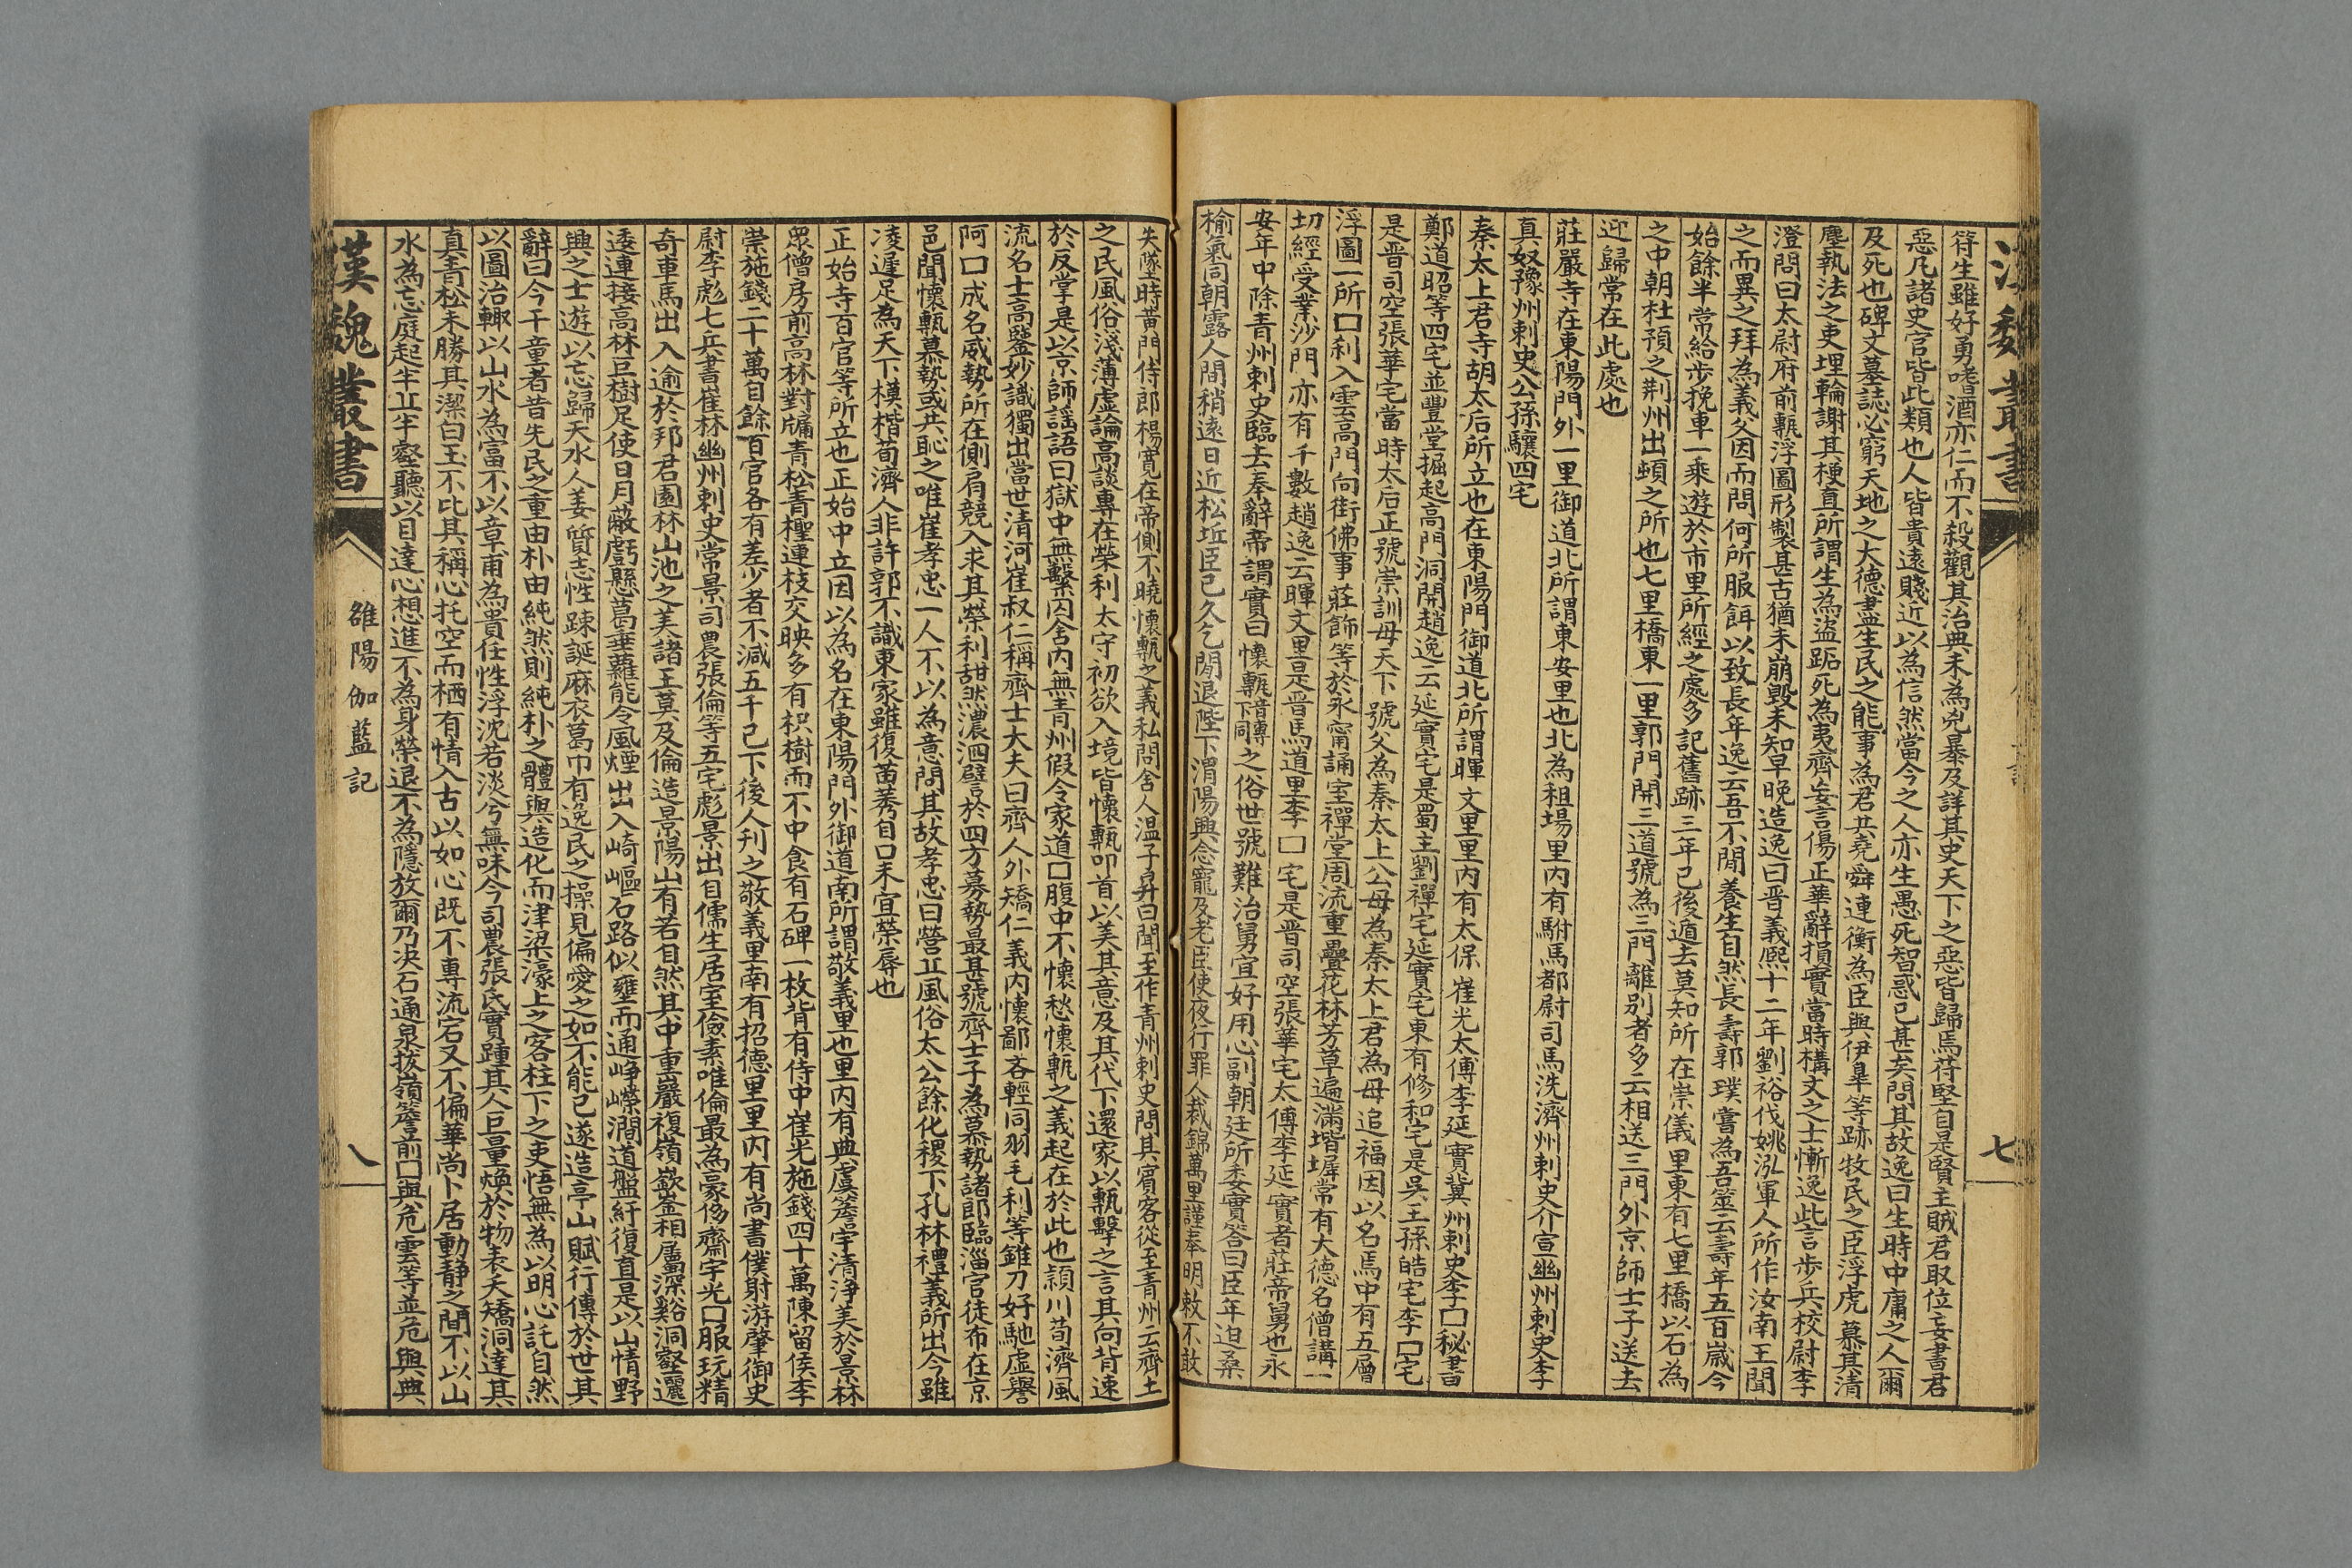 漢魏叢書
七
符生雖好勇嗜酒亦仁而不殺觀其治典未為兇暴及詳其史天下之惡皆歸焉苻堅自是賢主賊君取位妄書君
惡凡諸史官皆此類也人皆貴遠賤近以為信然當今之人亦生愚死智惑已甚矣問其故逸曰生時中庸之人爾
及死也碑文墓誌必窮天地之大德盡生民之能事為君共堯舜連衡為臣與伊臯等跡牧民之臣浮虎慕其清
塵執法之吏埋輪謝其梗直所謂生為盜跖死為夷齊妄言傷正華辭損實當時構文之士慚逸此言步兵校尉李
澄問曰太尉府前甎浮圖形製甚古猶未崩毀未知早晚造逸曰晋義熙十二年劉裕伐姚泓軍人所作汝南王聞
之而異之拜為義父因而問何所服餌以致長年逸云吾不閒養生自然長壽郭璞嘗為吾筮云壽年五百歲今
始餘半常給步挽車一乘遊於市里所經之處多記舊跡三年已後遁去莫知所在崇儀里東有七里橋以石為
之中朝杜預之荆州出頓之所也七里橋東一里郭門開三道號為三門離別者多云相送三門外京師士子送去
迎歸常在此處也
莊嚴寺在東陽門外一里御道北所謂東安里也北為租場里內有駙馬都尉司馬洗濟州刺史介宣幽州刺史李
真奴豫州刺史公孫驤四宅
秦太上君寺胡太后所立也在東陽門御道北所謂暉文里里內有太保崔光太傅李延實冀州刺史李口秘書
鄭道昭等四宅並豐堂掘起高門洞開趙逸云延實宅是蜀主劉禪宅延實宅東有修和宅是吳王孫皓宅李口宅
是晋司空張華宅當時太后正號崇訓母天下號父為秦太上公母為秦太上君為母追福因以名焉中有五層
浮圖一所口利入雲高門向街佛事莊飾等於永甯誦室禪堂周流重疊花林芳草遍滿堦墀常有大德名僧講一
切經受業沙門亦有千數趙逸云暉文里是晋馬道里李口宅是晋司空張華宅太傅李延實者莊帝舅也永
安年中除青州刺史臨去奉辭帝謂實曰懷甎音專下同之俗世號難治舅宜好用心副朝廷所委實答曰臣年迫桑
榆氣同朝露人間稍遠日近松坵臣已久乞閒退陛下渭陽興念寵及老臣使夜行罪人裁錦萬里謹奉明敕不敢
失隊時黃門侍郎楊寬在帝側不曉懷甎之義私問舍人溫子昇曰聞至作青州刺史問其賓客從至青州云齊土
之民風俗淺薄虛論高談專在榮利太守初欲入境皆懷甎叩首以美其意及其代下還家以甎擊之言其向背速
於反掌是以京師謡語曰獄中無繫囚舍內無青州假令家道口腹中不懷愁懷甎之義起在於此也潁川荀濟風
流名士高鑒妙識獨出當世清河崔叔仁稱齊士大夫曰齊人外矯仁義內懷鄙吝輕同羽毛利等錐刀好馳虛譽
阿口成名威勢所在側肩競入求其榮利甜然濃泗譬於四方募勢最甚號齊士子為慕勢諸郎臨淄官徒布在京
邑聞懷甎慕勢或共恥之唯崔孝忠一人不以為意問其故孝忠曰營丘風俗太公餘化稷下孔林禮義所出今雖
凌遲足為天下模楷荀濟人非許郭不識東家雖復莠莠自口未宜榮辱也
正始寺百官等所立也正始中立因以為名在東陽門外御道南所謂敬義里也里內有典虞簷宇清淨美於景林
眾僧房前高林對牖青松青檉連枝交映多有枳樹而不中食有石碑一枚背有侍中崔光施錢四十萬陳留侯李
崇施錢二十萬自餘百官各有差少者不減五千已下後人刋之敬義里南有招德里里內有尚書僕射游肇御史
尉李彪七兵書崔林幽州刺史常景司農張倫等五宅彪景出自儒生居室儉素唯倫最為豪侈齋宇光口服玩精
奇車馬出入逾於邦君園林山池之美諸王莫及倫造景陽山有若自然其中重巖複嶺嶔崟相屬深谿洞壑邐
逶連接高林巨樹足使日月蔽虧懸葛垂蘿能令風煙出入崎嶇石路似壅而通崢嶸澗道盤紆復直是以山情野
興之士遊以忘歸天水人姜質志性疎誕麻衣葛巾有逸民之操見偏愛之如不能已遂造亭山賦行傳於世其
辭曰今千童者昔先民之重由朴由純然則純朴之體與造化而津梁濠上之客柱下之吏悟無為以明心託自然
以圖治輙以山水為富不以章甫為貴任性浮沈若淡兮無味今司農張氏實踵其人巨量煥於物表夭矯洞達其
真青松未勝其潔白玉不比其稱心托空而栖有情入古以如心既不專流宕又不偏華尚卜居動靜之間不以山
水為忘庭起半丘半壑聽以目達心想進不為身榮退不為隱放爾乃决石通泉拔嶺簷前口與危雲等並危與典
漢魏叢書
雒陽伽藍記
八